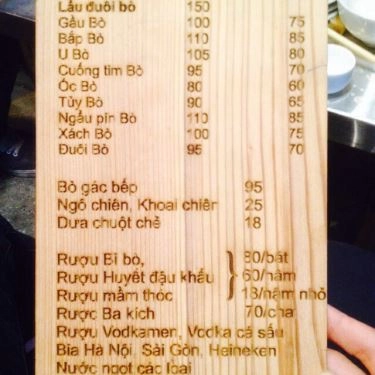 Lẩu đuôi bò 150
Gầu Bò 100 75
Bắp Bò 110 85
U Bò 105 80
Cuống tim Bò 95 70
Óc Bò 80 60
Tủy Bò 90 65
Ngẩu pín Bò 110 85
Xách Bò 100 75
Đuôi Bò 95 70
Bò gác bếp 95
Ngô chiên, Khoai chiên 25
Dưa chuột chẻ 18
Rượu Bì bò, 80/bát
Rượu Huyết đậu khấu 60/hâm
Rượu mầm thóc 18/hâm nhỏ
Rược Ba kích 70/chai
Rượu Vodkamen, Vodka cá sấu
Bia Hà Nội, Sài Gòn, Heineken
Nước ngọt các loại